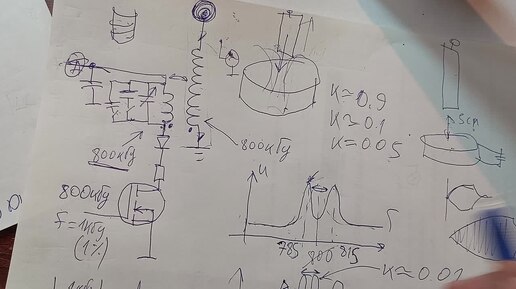 K≈0.9
K≈0.1
K≈0.05
5см
800кГц
800кГц
800кГц
F=1кГц
(1%)
U
F
785 800 815
K≈0.01